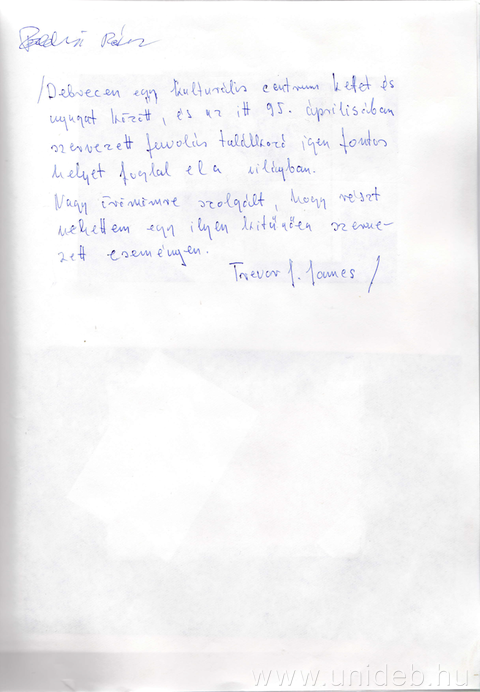 /Debrecen egy kulturális centrum kelet és
nyugat között, és az itt 95. áprilisában
szervezett fuvolás találkozó igen fontos
helyet foglal el a világban.
Nagy örömömre szolgált, hogy részt
vehettem egy ilyen kitűnően szerve-
zett eseményen.
Trevor J. James /
www.unideb.hu